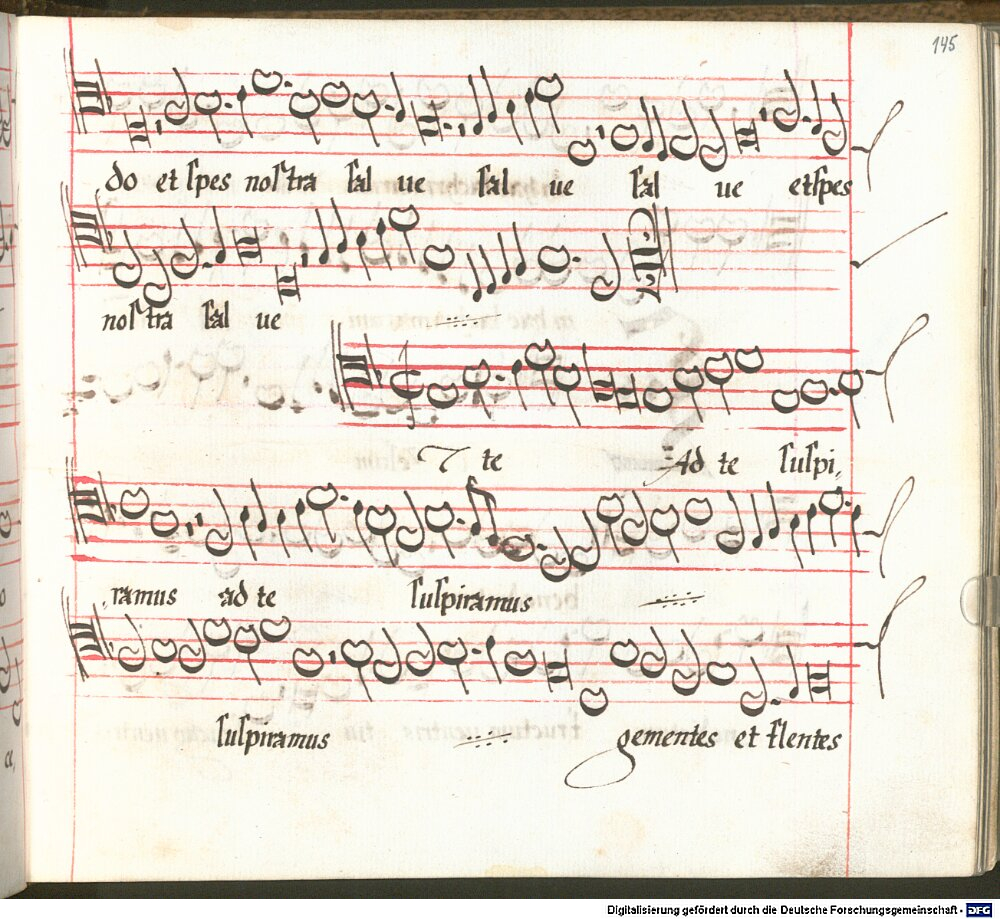 145
do et ſpes noſtra ſal ue ſal ue ſal ue et ſpes
noſtra ſal ue
te Ad te ſuſpi,
,ramus ad te ſuſpiramus
ſuſpiramus gementes et flentes
Digitalisierung gefördert durch die Deutsche Forschungsgemeinschaft - DFG